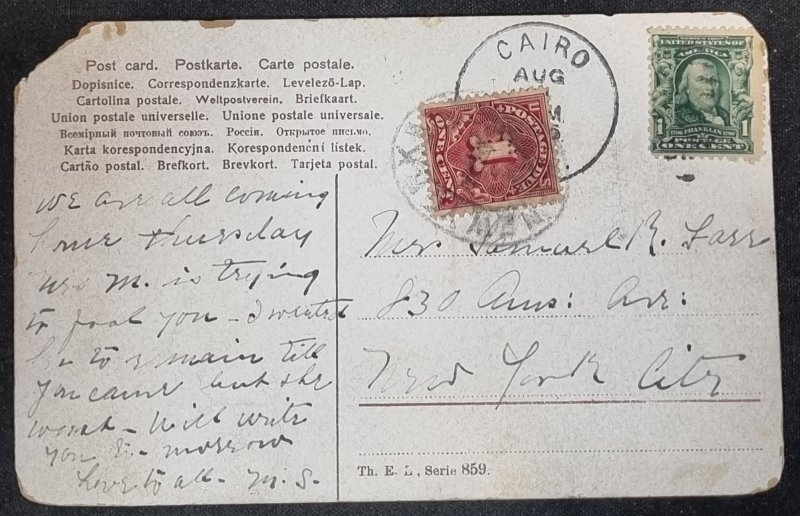 Post card. Postkarte. Carte postale.
Dopisnice. Correspondenzkarte. Levelező-Lap.
Cartolina postale. Weltpostverein. Briefkaart.
Union postale universelle. Unione postale universale.
Всемірный почтовый союзъ. Россія. Открытое письмо.
Karta korespondencyjna. Korespondenční lístek.
Cartão postal. Brefkort. Brevkort. Tarjeta postal.
we are all coming
home thursday
Mrs M. is trying
to fool you - I wanted
her to remain till
you came but she
wont - Will write
you to-morrow
Love to all - M. S.
CAIRO
AUG
POSTAGE DUE
1
ONE CENT
UNITED STATES OF AMERICA
1
FRANKLIN
ONE CENT
Mrs Samuel R. Farr
830 Ams: Ave:
New York City
Th. E. L., Serie 859.